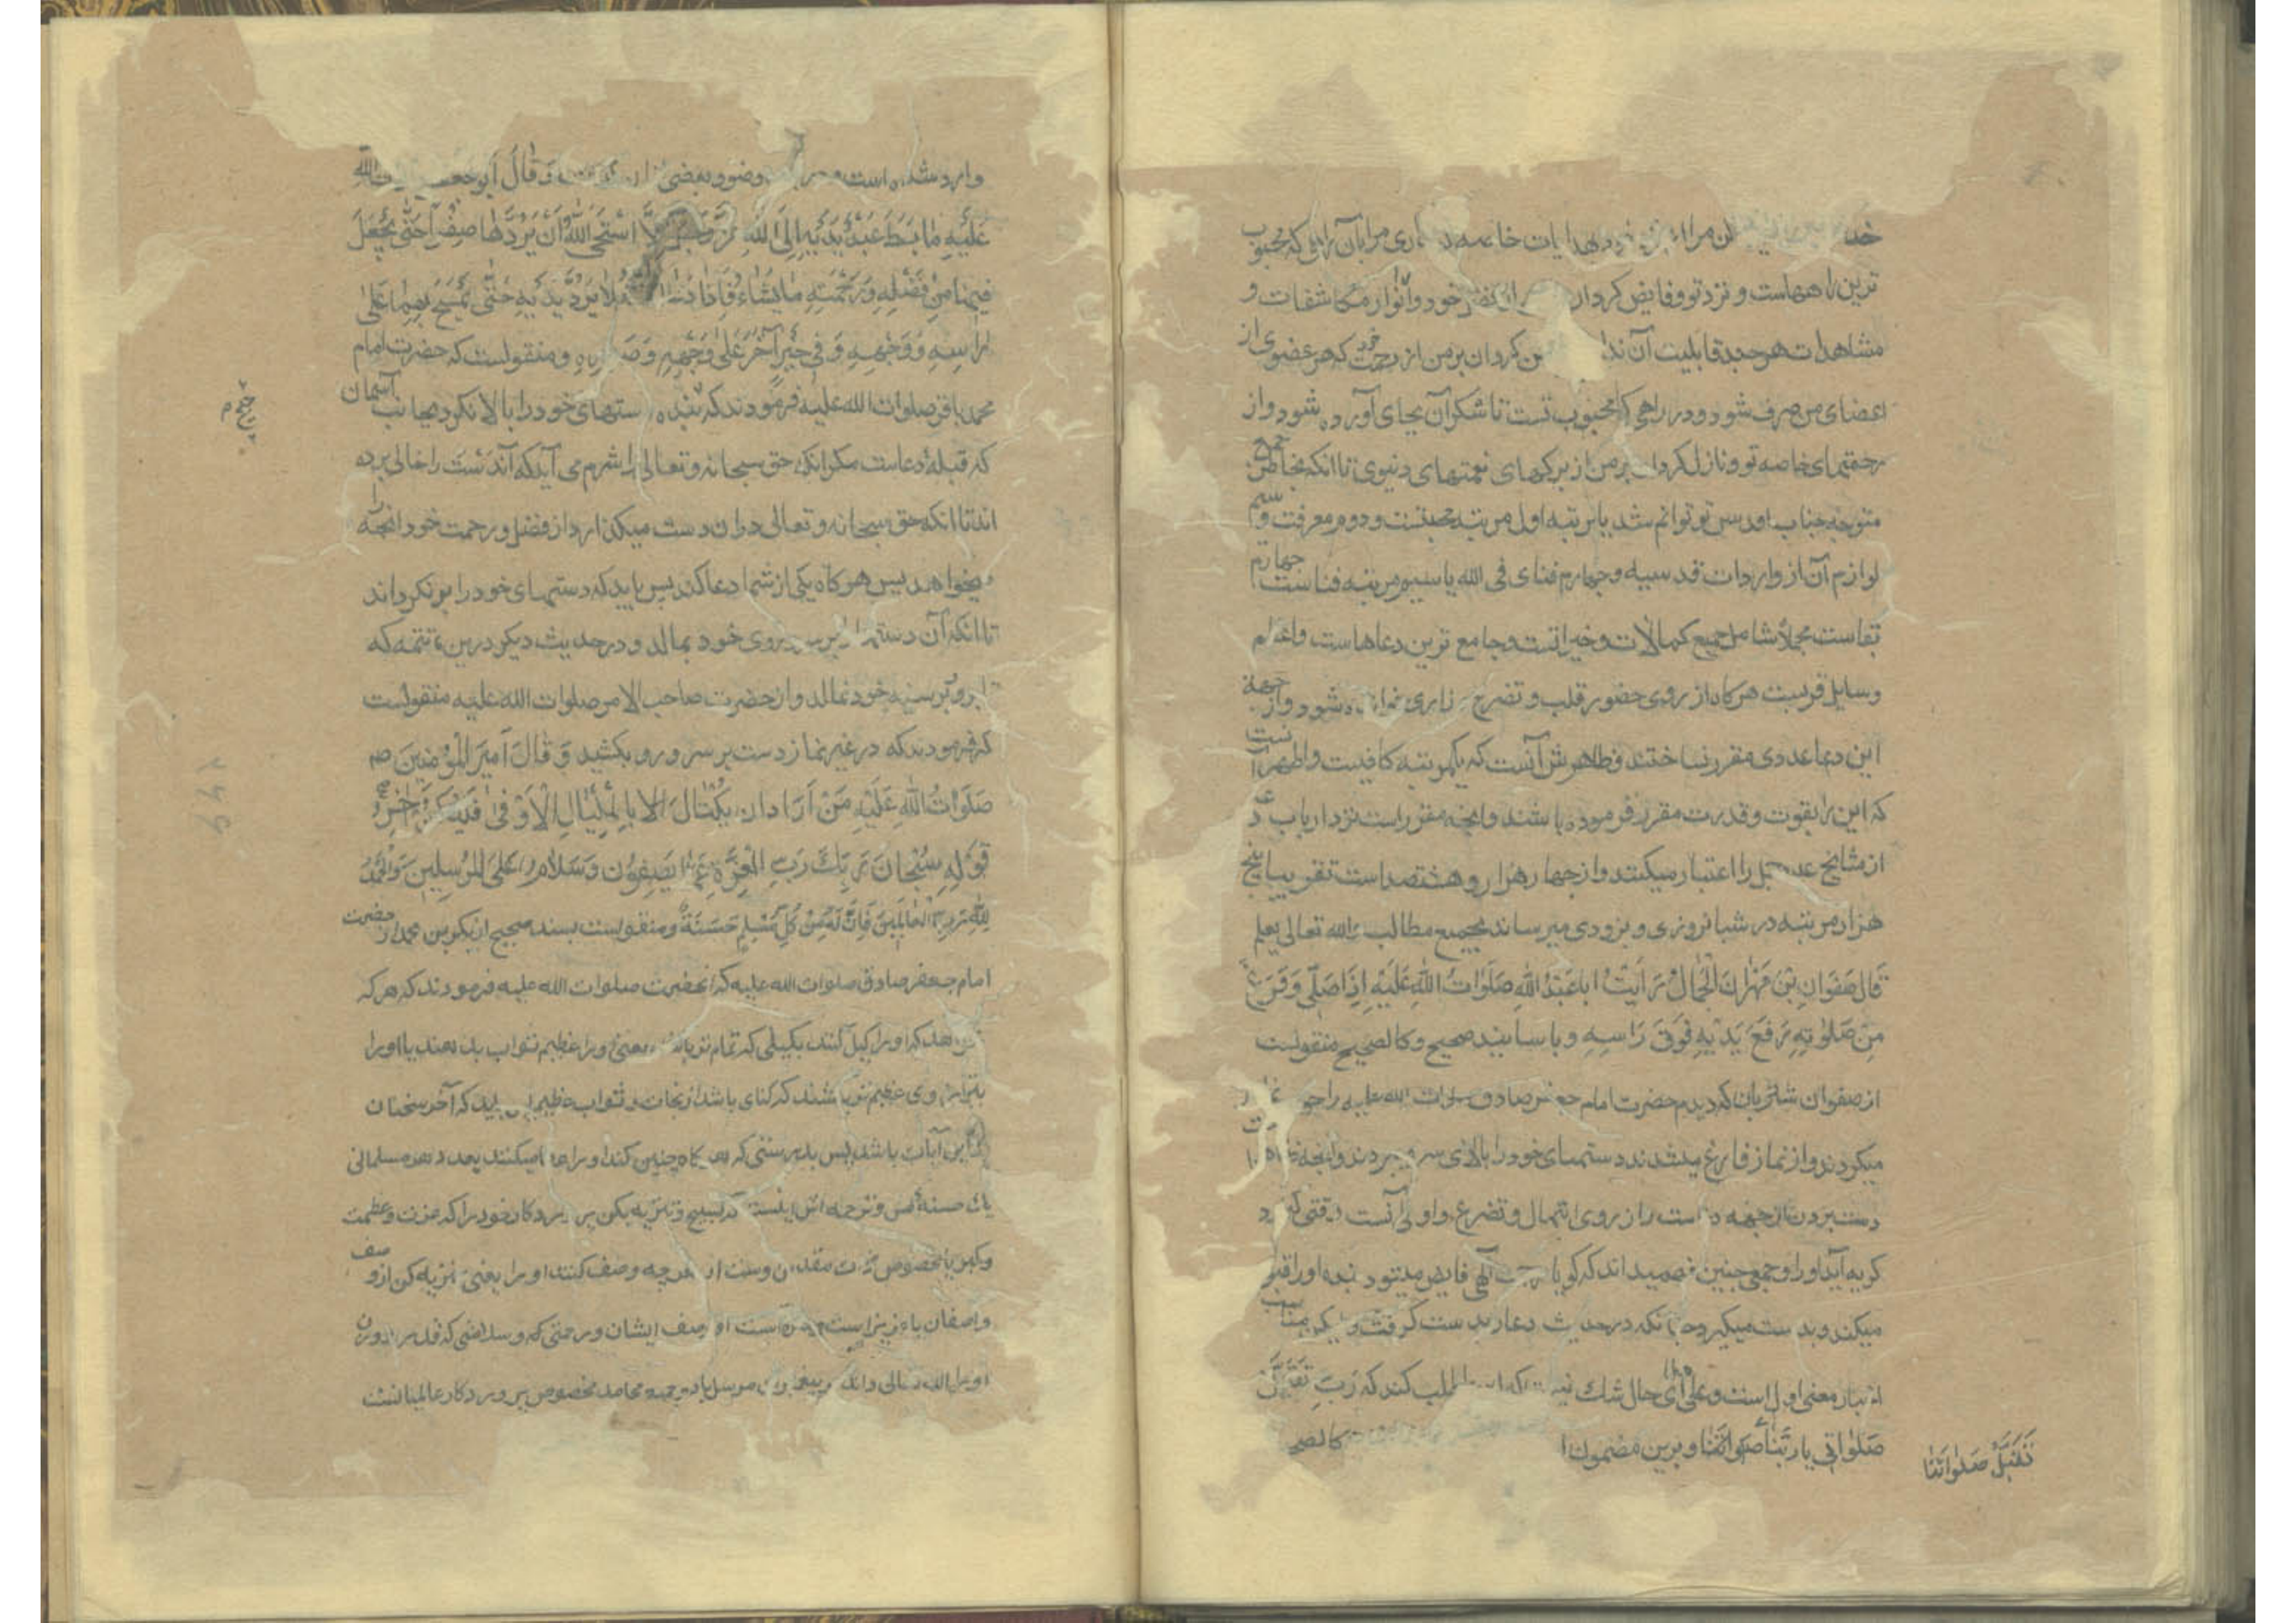 خد ن مرا از نزد خود بهدایات خاصه مرا بآن راهی که محبوب
ترین راههاست و نزد تو و فایض کردان از خود و انوار مکاشفات و
مشاهدات هر چند قابلیت آن ندا ن کردان بر من از رحمت خود که هر عضوی از
اعضای من صرف شود در راهی که محبوب تست تا شکر آن بجای آورده شود و از
رحمتهای خاصه تو و نازل کردان بر من از برکتهای نعمتهای دنیوی تا انکه بخاطر جمع
متوجه جناب اقدس تو توانم شد یا مرتبه اول مرتبه محبتست و دوم معرفت و سیم
لوازم آن از واردات قدسیه و چهارم فنای فی الله یا سیم مرتبه فناست چهارم
بقاست مجملاً شامل جمیع کمالات و خیراتست و جامع ترین دعاهاست و اعظم
وسایل قربست هرکاه از روی حضور قلب و تضرع و زاری خوانده شود و از جهة
این دعا عددی مقرر نساختند و ظاهرش آنست که یکمرتبه کافیست و اظهر آنست
که این را بقوت و قدرت مقرر فرموده باشند و انچه مقرر است نزد ارباب
از مشایخ عدد جمل را اعتبار میکنند و از چهار هزار و هشتصد است تقریبا پنج
هزار مرتبه در شبانروزی و بزودی میرساند بجمیع مطالب والله تعالی یعلم
قَالَ صَفوَان بْنُ مَهْرَانَ الْجَمَّالُ رَاَیْتُ اباعَبْدِ اللهِ صَلَوَاتُ اللهِ عَلَیْهِ اِذَا صَلّی وَفَرَغَ
مِنْ صَلوٰتِهِ رَفَعَ یَدَیْهِ فَوْقَ رَاسِهِ و باسانید صحیح و کالصحیح منقولست
از صفوان شتربان که دیدم حضرت امام جعفر صادق صلوات الله علیه را چون نماز
میکردند و از نماز فارغ میشدند دستهای خود را بالای سر میبردند و انچه
دست بردن از جهه دعاست را از روی ابتهال و تضرع و اولی آنست وقتی که
کریه آید او را و جمعی چنین فهمیده‌اند که کویا رحمت آلهی فایض میشود بنده او را قبول
میکند و بدست میکیرد چنانکه در حدیث دعا دست کرفتن
انبار معنی اول است و علی ای حال شک نیست که طلب کند که رَبِّ تَقَبَّلْ
صَلوٰاتی یا رَبَّنَا صَلوٰاتَنَا و برین مضمون کالصحیح
تَقَبَّلْ صَلوٰاتَنَا
وارد شده است وضو و بعضی وَقَالَ اَبو جَعفَر صلوات الله
عَلَیْهِ مَا بَسَطَ عَبْدٌ یَدَیْهِ اِلَی اللهِ عَزَّ وَجَلَّ اِلَّا اسْتَحْیَی اللهُ اَنْ یَرُدَّهَا صِفْراً حَتّٰی یَجْعَلَ
فِیهَا مِنْ فَضْلِهِ وَرَحْمَتِهِ مَا یَشَاءُ فَاِذَا دَعَا فَلَا یَرُدَّ یَدَیْهِ حَتّٰی یَمْسَحَ بِهِمَا عَلیٰ
رَاسِهِ وَوَجْهِهِ وَفِی خَبَرٍ آخَرَ عَلیٰ وَجْهِهِ وَصَدْرِهِ و منقولست که حضرت امام
محمد باقر صلوات الله علیه فرمودند که بنده دستهای خود را بالا نکرد بجانب آسمان
که قبلهٔ دعاست مکر انکه حق سبحانه و تعالی را شرم می آید که آندست را خالی برده
اند تا انکه حق سبحانه و تعالی در ان دست میکذارد از فضل و رحمت خود انچه را
میخواهد پس هرکاه یکی از شما دعا کند پس باید که دستهای خود را برنکرداند
تا انکه آن دستها را بر سر و روی خود بمالد و در حدیث دیکر درین تتمه که
بر رو و بر سینه خود بمالد و از حضرت صاحب الامر صلوات الله علیه منقولست
که فرمودند که در غیر نماز دست بر سر و رو بکشید وَ قَالَ اَمیرَ الْمؤمِنینَ
صَلَوَاتُ اللهِ عَلَیْهِ مَنْ اَرَادَ اَنْ یَکْتَالَ بِالْمِکْیَالِ الْاَوْفیٰ فَلْیَکُنْ آخِرُ
قَوْلِهِ سُبْحَانَ رَبِّكَ رَبِّ الْعِزَّةِ عَمَّا یَصِفُونَ وَسَلَامٌ عَلَی الْمُرْسَلِینَ وَالْحَمْدُ
لِلّٰهِ رَبِّ الْعَالَمِینَ فَاِنَّ لَهُ مِنْ کُلِّ مُسْلِمٍ حَسَنَةً و منقولست بسند صحیح از بکر بن محمد از حضرت
امام جعفر صادق صلوات الله علیه که آنحضرت صلوات الله علیه فرمودند که هر که
خواهد که او را کیل کنند بکیلی که تمام تر باشد یعنی او را عظیم ثواب بدهند یا او را
بترازوی عظیم تر بکشند که کنایت باشد از رجحان و ثواب عظیم پس باید که آخر سخنان
او این آیات باشد پس بدرستی که هر کاه چنین کند او را عطا میکنند بعدد هر مسلمانی
یك حسنه پس و ترجمه اش اینست که تسبیح و تنزیه بکن پروردکار خود را که عزت و عظمت
و کبریا مخصوص ذات مقدس اوست از هرچه وصف کنند او را یعنی تنزیه کن از وصف
واصفان او وصف ایشان و رحمتی که و سلامتی که
اوس الله تعالی و انکه بر پیغمبران مرسل باد و جمیع محامد مخصوص پروردکار عالمیانست